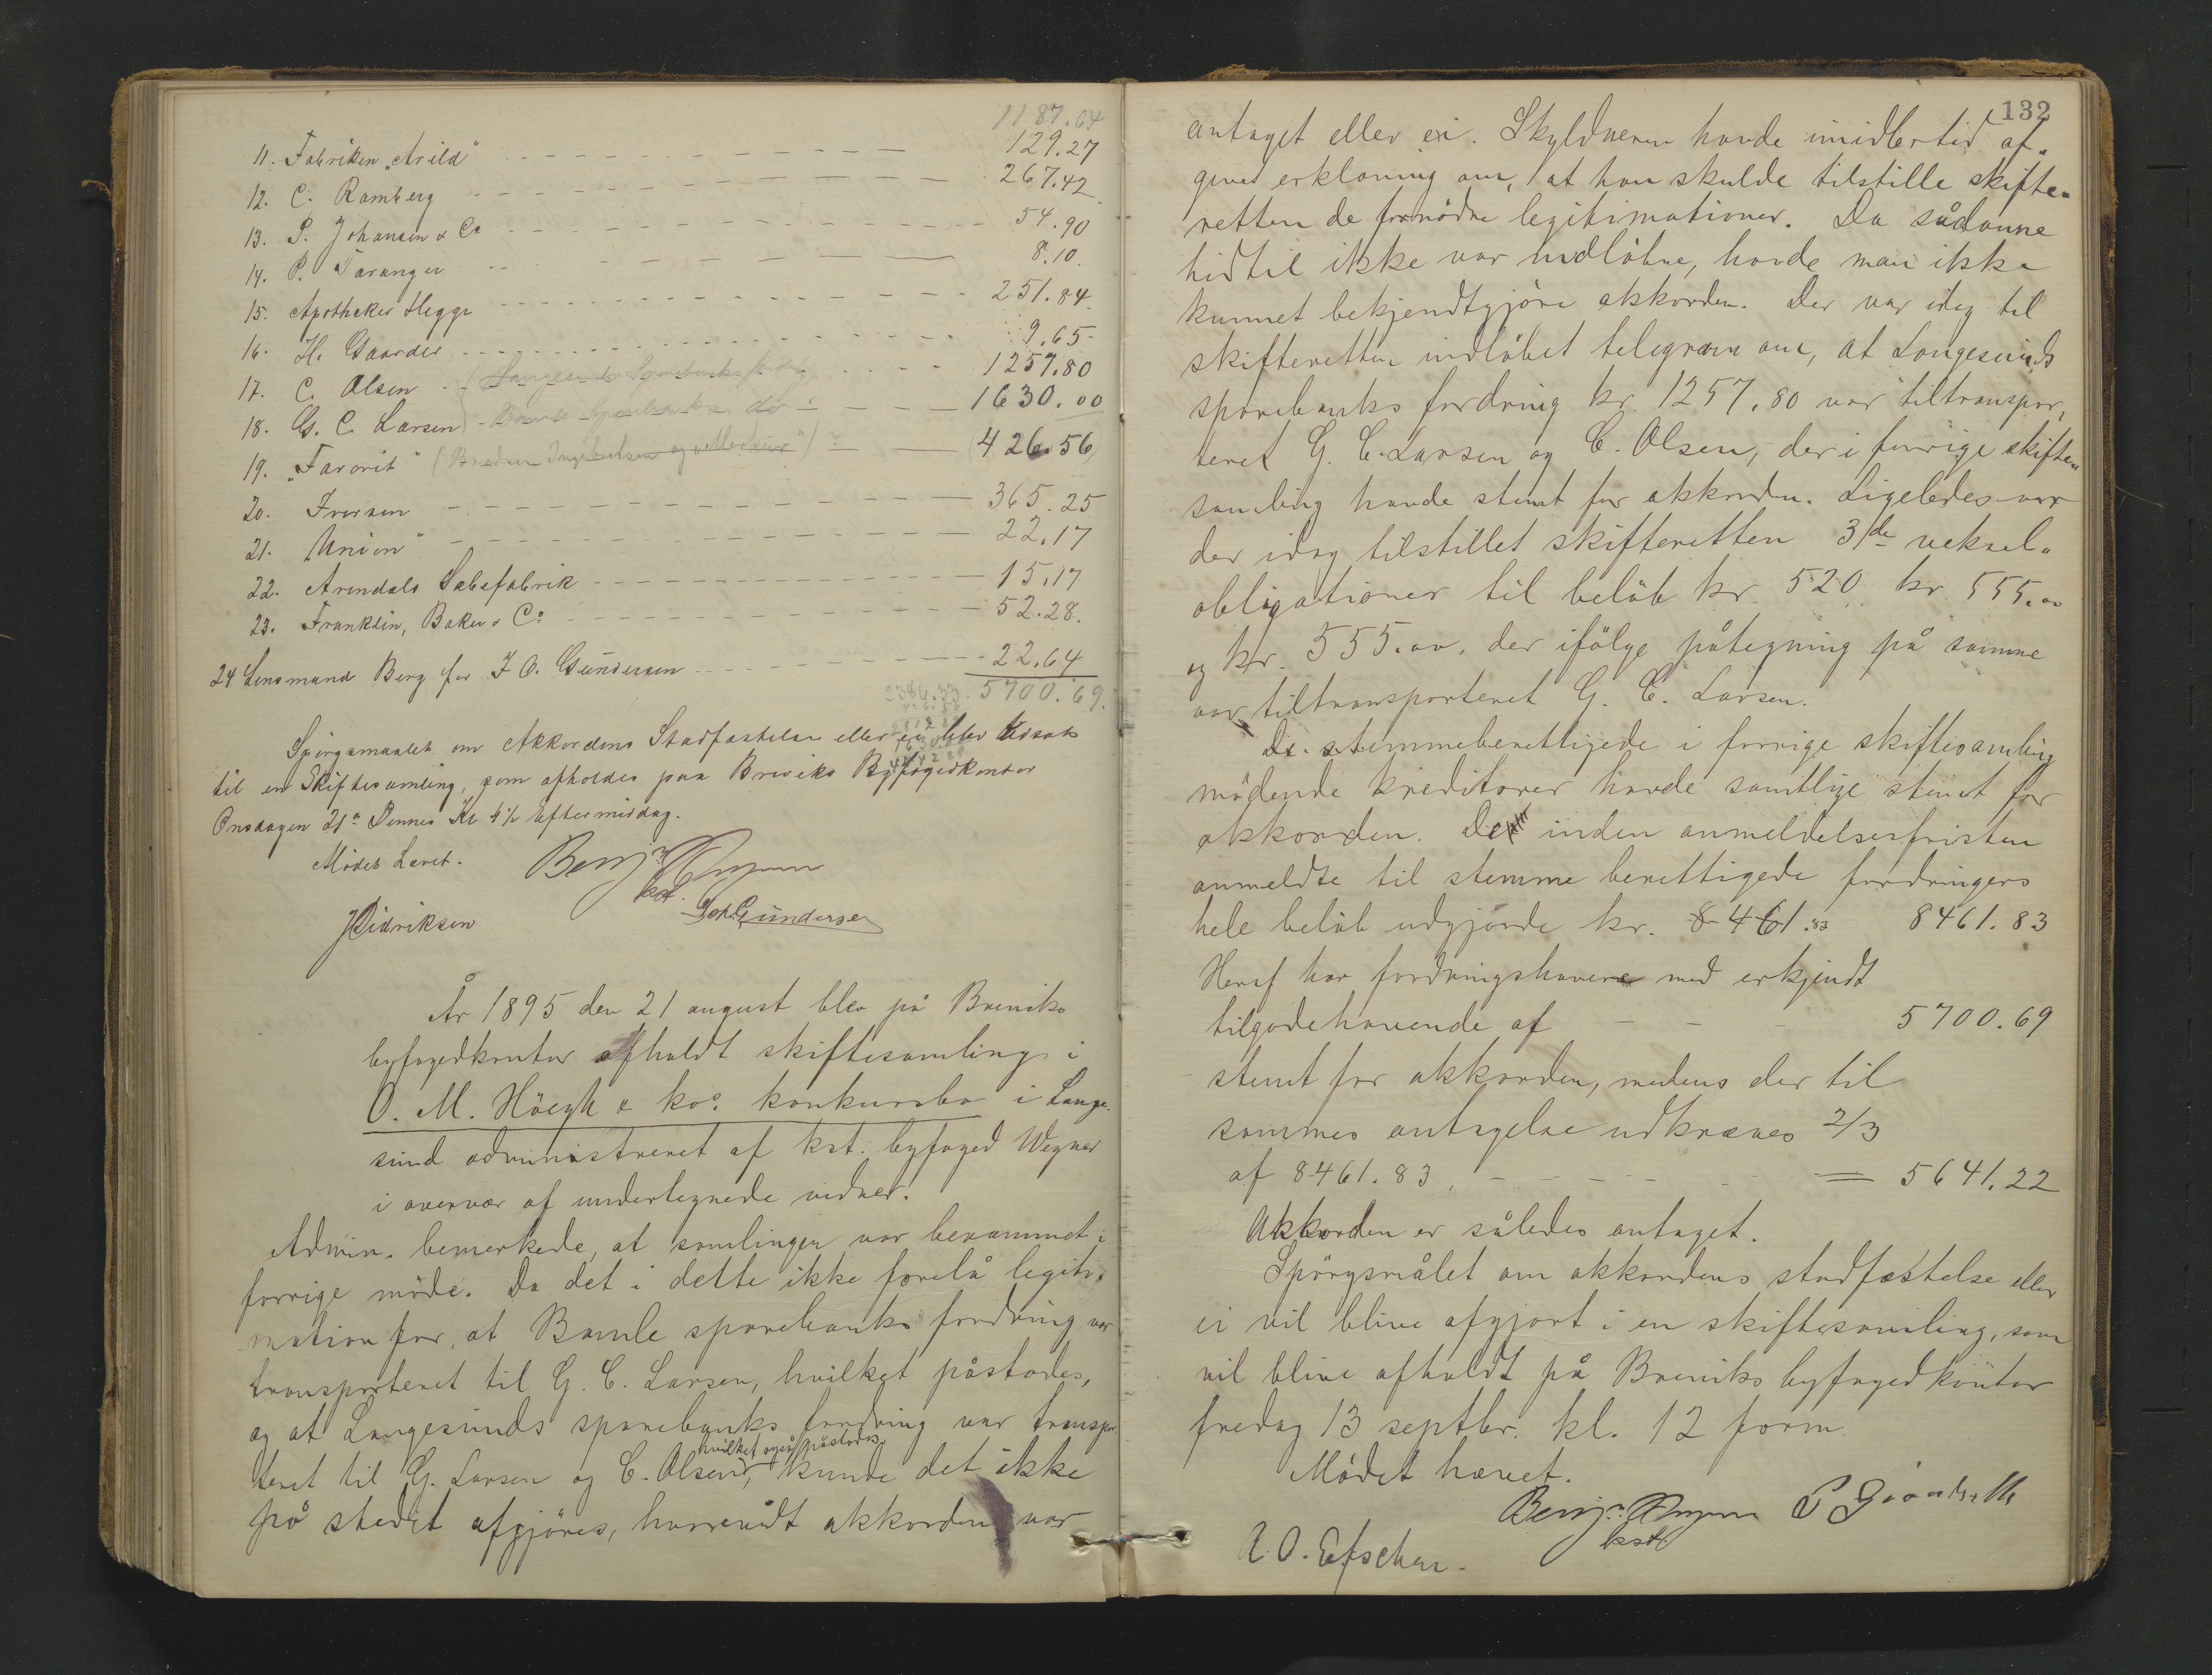 1187.64
11. Fabriken „Arild" 129.27
12. C. Ramberg 267.42
13. P. Johansen & Co 54.90
14. P. Taranger 8.10
15. Apotheker Hegge 251.84
16. H. Gaarder 9.65
17. C. Olsen (Langesunds Sparebanks fordring 1257.80
18. G. C. Larsen) Bamle Sparebanks do 1630.00
19. „Favorit" (Brødrene Ingebretsen og ) 426.56
20. Iversen 365.25
21. Union" 22.17
22. Arendals Sæbefabrik 15.17
23. Franklin, Baker & Co 52.28.
24 Lensmand Berg for J O. Gundersen 22.64
2386.33. 5700.69.
Spørgsmaalet om Akkordens Stadfæstelse eller ei blev udsat
til en Skiftesamling, som afholdes paa Breviks Byfogedkontor
Onsdagen 21de Dennes Kl 4½ Eftermiddag.
Mødet hævet.
Benj. Wegner
kst.
J Didriksen
Joh. Gundersen
År 1895 den 21 august blev på Breviks
byfogedkontor afholdt skiftesamling i
O. M. Höegh & kos. konkursbo i Lange-
sund administreret af kst. byfoged Wegner
i overvær af undertegnede vidner.
Admin. bemerkede, at samlingen var berammet i
forrige møde. Da det i dette ikke forelå legiti-
mation for, at Bamle sparebanks fordring var
transporteret til G. C. Larsen, hvilket påstodes,
og at Langesunds sparebanks fordring var transpor
hvilket også påstodes,
teret til G. Larsen og C. Olsen, kunde det ikke
på stedet afgjöres, hvorvidt akkorden var
132
antaget eller ei. Skyldneren havde imidlertid af-
givet erklæring om, at han skulde tilstille skifte-
retten de fornödne legitimationer. Da sådanne
hidtil ikke var indløbne, havde man ikke
kunnet bekjendtgjöre akkorden. Der var idag til
skifteretten indløbet telegram om, at Langesunds
sparebanks fordring kr. 1257.80 var tiltranspor-
teret G. C. Larsen og C. Olsen, der i forrige skifte-
samling havde stemt for akkorden. Ligeledes var
der idag tilstillet skifteretten 3de veksel-
obligationer til beløb kr. 520 kr 555.00
og kr. 555.00. der ifölge påtegning på samme
var tiltransporteret G. C. Larsen.
De stemmeberettigede i forrige skiftesamling
mødende kreditorer havde samtlige stemt for
akkorden. De inden anmeldelsesfristen
anmeldte til stemme berettigede fordringers
hele beløb udgjorde kr. 8461.83 8461.83
Heraf har fordringshavere med erkjendt
tilgodehavende af 5700.69
stemt for akkorden, medens der til
sammes antagelse udkræves 2/3
af 8461.83. = 5641.22
Akkorden er således antaget.
Spörgsmålet om akkordens stadfæstelse eller
ei vil blive afgjort i en skiftesamling, som
vil blive afholdt på Breviks byfogedkontor
fredag 13 septbr. kl. 12 form.
Mødet hævet.
Benj. Wegner
kst.